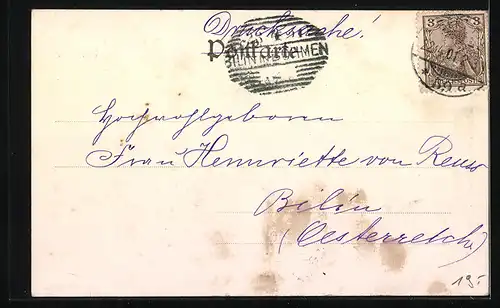 Drucksache!
Postkarte
3 3
Hochwohlgeboren
Frau Hennriette von Reuss
Bilin
(Oesterreich)
19.-